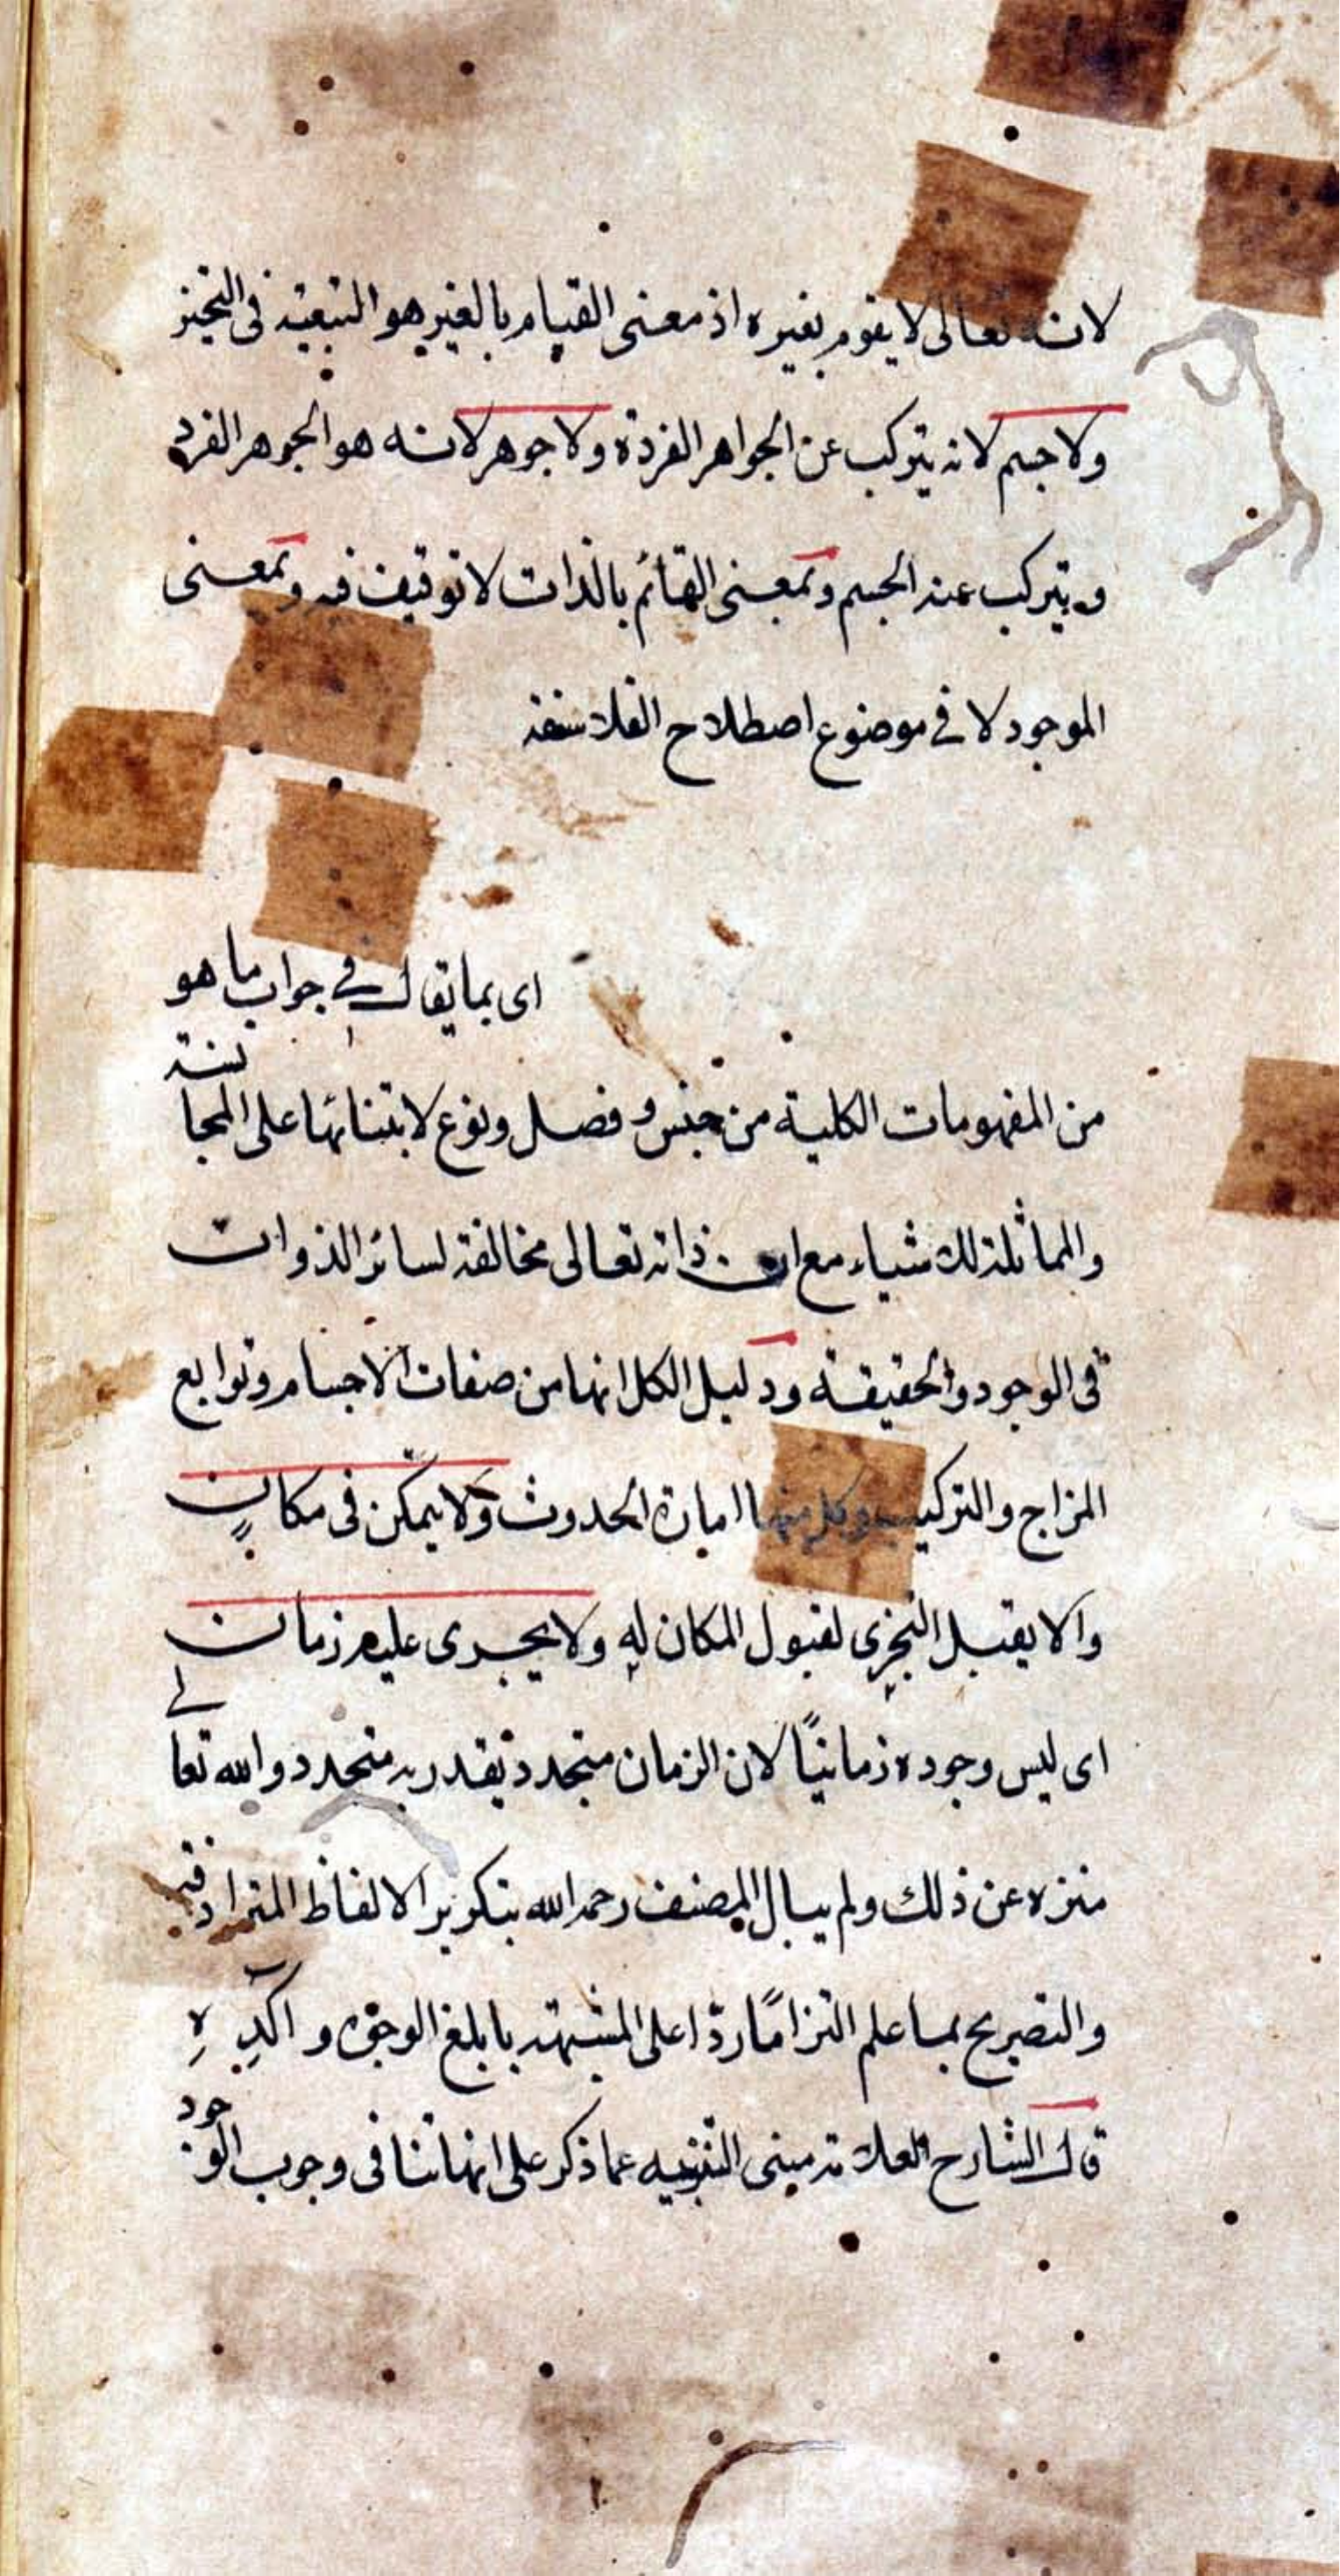 لانه تعالى لا يقوم بغيره اذ معنى القيام بالغير هو التبعية في التحيز
ولا جسم لانه يتركب عن الجواهر الفردة ولا جوهر لانه هو الجوهر الفرد
ويتركب عنه الجسم وبمعنى القائم بالذات لا توقيف فيه وبمعنى
الموجود لا في موضوع اصطلاح الفلاسفة
اى بما يقال في جواب ما هو
من المفهومات الكلية من جنس وفصل ونوع لابتنائها على المجانسة
والمماثلة للاشياء مع ان ذاته تعالى مخالفة لسائر الذوات
في الوجود والحقيقة ودليل الكل انها من صفات الاجسام وتوابع
المزاج والتركيب وكل منها امارة الحدوث ولا يتمكن في مكان
والا يقبل التجزى لقبول المكان له ولا يجرى عليه زمان
اى ليس وجوده زمانيًا لان الزمان متجدد يقدر به متجدد والله تعالى
منزه عن ذلك ولم يبال المصنف رحمه الله بتكرير الالفاظ المترادفة
والتصريح بما علم التزامًا ردّا على المشبهة بابلغ الوجوه واكدِهِ
قال الشارح العلامة مبنى التنزيه عما ذكر على انها تنافى وجوب الوجود